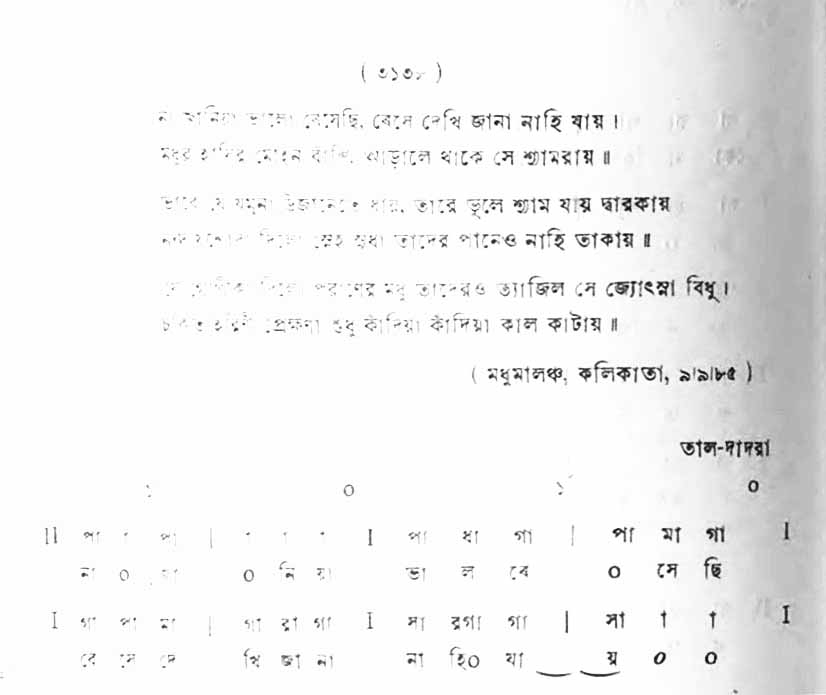 ( ৩১৩৮ )
না জানিয়া ভালো বেসেছি, বেসে দেখি জানা নাহি যায় ।
মধুর হাসির মোহন বাঁশি, আড়ালে থাকে সে শ্যামরায় ॥
ভাবে যে যমুনা উজানেতে ধায়, তারে ভুলে শ্যাম যায় দ্বারকায়
নন্দ যশোদা দিলো স্নেহ সুধা তাদের পানেও নাহি তাকায় ॥
যে গোপীকা দিলো পরাণের মধু তাদেরও ত্যাজিল সে জ্যোৎস্না বিধু ।
চকিত হরিণী প্রেক্ষণা শুধু কাঁদিয়া কাঁদিয়া কাল কাটায় ॥
( মধুমালঞ্চ, কলিকাতা, ৯।৯।৮৫ )
তাল-দাদরা
১ ০ ১ ০
II পা া পা | া া া I পা ধা গা | পা মা গা I
না ০ জা ০ নি য়া ভা ল বে ০ সে ছি
I গা পা মা | গা রা গা I সা রগা গা | সা া া I
বে সে দে খি জা না না হি০ যা য় ০ ০